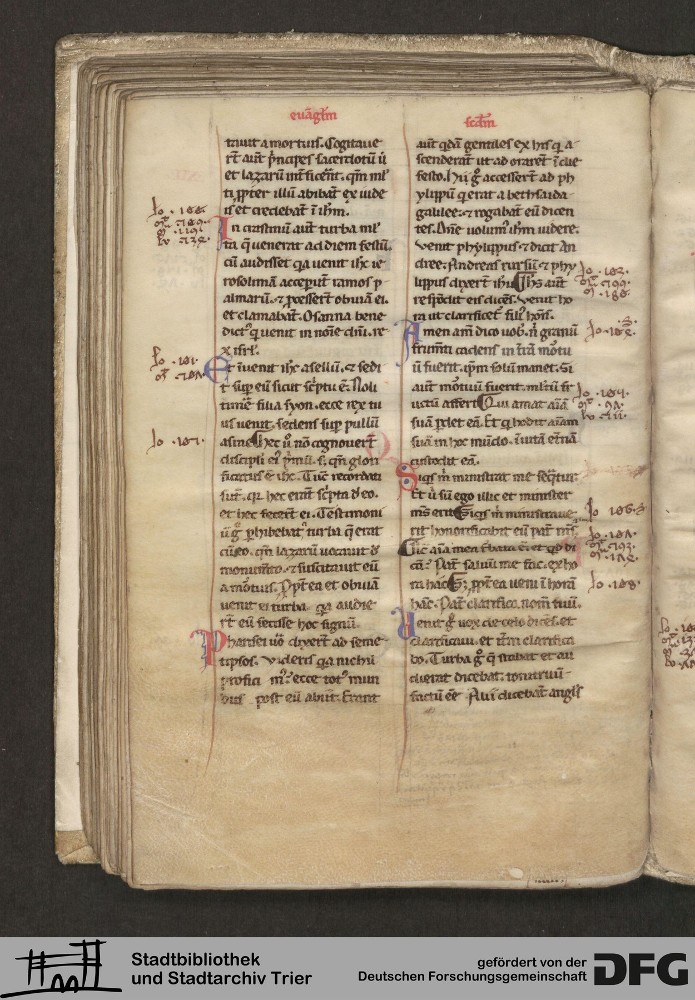 evāgl̄m
scd̄m
tauit a mortuis. Cogitaue
rt̄ aut̄ p̄ncipes sacerdotū ū
et lazarū int̄ficēnt. qm̄ ml̄
ti ꝓpter illū abibāt ex iude
is et credebāt ī ihm̄.
In crastinū aut̄ turba ml̄
ta q̄ uenerat ad diem festū.
cū audisset qa uenit ihc̄ ie
rosolimā acceperūt ramos p
almarū ⁊ ꝓcessert̄ obuiā ei.
et clamabāt. Osanna bene
dict' q̇ uenit in noīe dn̄i. re
x isrl̄.
Et īuenit ihc̄ asellū. ⁊ sedi
t suꝑ eū sicut sc̄ptū ē. Noli
timē filia syon. ecce rex tu
us uenit. sedens suꝑ pullū
asine. Hec ū nō cognouert̄
discipli ei' p̄mū. s; qn̄ glori
ficatus ē ihc̄. Tūc recordati
sūt. qr hec erāt sc̄pta d' eo.
et hec fecert̄ ei. Testimoni
ū g̊ ꝑhibebat turba q̄ erat
cū eo. qn̄ lazarū uocauit d'
monumēto. ⁊ suscitauit eū
a mortuis. Ꝓpt̄ea et obuiā
uenit ei turba. qa audie
rt̄ eū fecisse hoc signū.
Pharisei uō dixert̄ ad seme
tipsos. Videtis qa nichil
profici m'. ecce tot' mun
dus post eū abiit. Erant
aūt qdā gentiles ex his q̇ a
scenderāt ut adorarēt ī die
festo. Hii g̊ accessert̄ ad ph
ylippū q̇ erat a bethsaida
galilee. ⁊ rogabāt eū dicen
tes. Dn̄e uolum' ihm̄ uidere.
Venit phylippus ⁊ dicit An
dree. Andreas rursū ⁊ phy
lippus dixert̄ ihū. Ihs̄ aūt
respōdit eis dicēs. Venit ho
ra ut clarificet̄ fili' hoīs.
Amen am̄ dico uob'. n̄ granū
frumti cadens in t̄rā mōtu
ū fuerit. ip̄m solū manet. Si
aūt mōtuū fuerit. ml̄tū fr
uctū affert. Qui amat aīā
suā ꝑdet eā. Et q̇ hodit aīam
suā in hoc mūdo. ī uitā et̄nā
custodit eā.
Siqs m̄ ministrat me seq̄tur
Et ū sū ego illic et minister
m̄s erit. Siqs m̄ ministraue
rit honorificabit eū pat̄ m̄s.
Nūc aīa mea t̄bata ē. et qd di
cā? Pat̄ saluū me fac. ex ho
ra hac. S; ꝓpt̄ea ueni ī horā
hāc. Pat̄ clarifica nom̄ tuū.
Venit g̊ uox de celo dicēs. et
clarificaui. et it̄m clarifica
bo. Turba g̊ q̄ stabat et au
dierat dicebat. tonitruū
factū eē. Alii dicebāt angl's
Stadtbibliothek
und Stadtarchiv Trier
gefördert von der
Deutschen Forschungsgemeinschaft
DFG